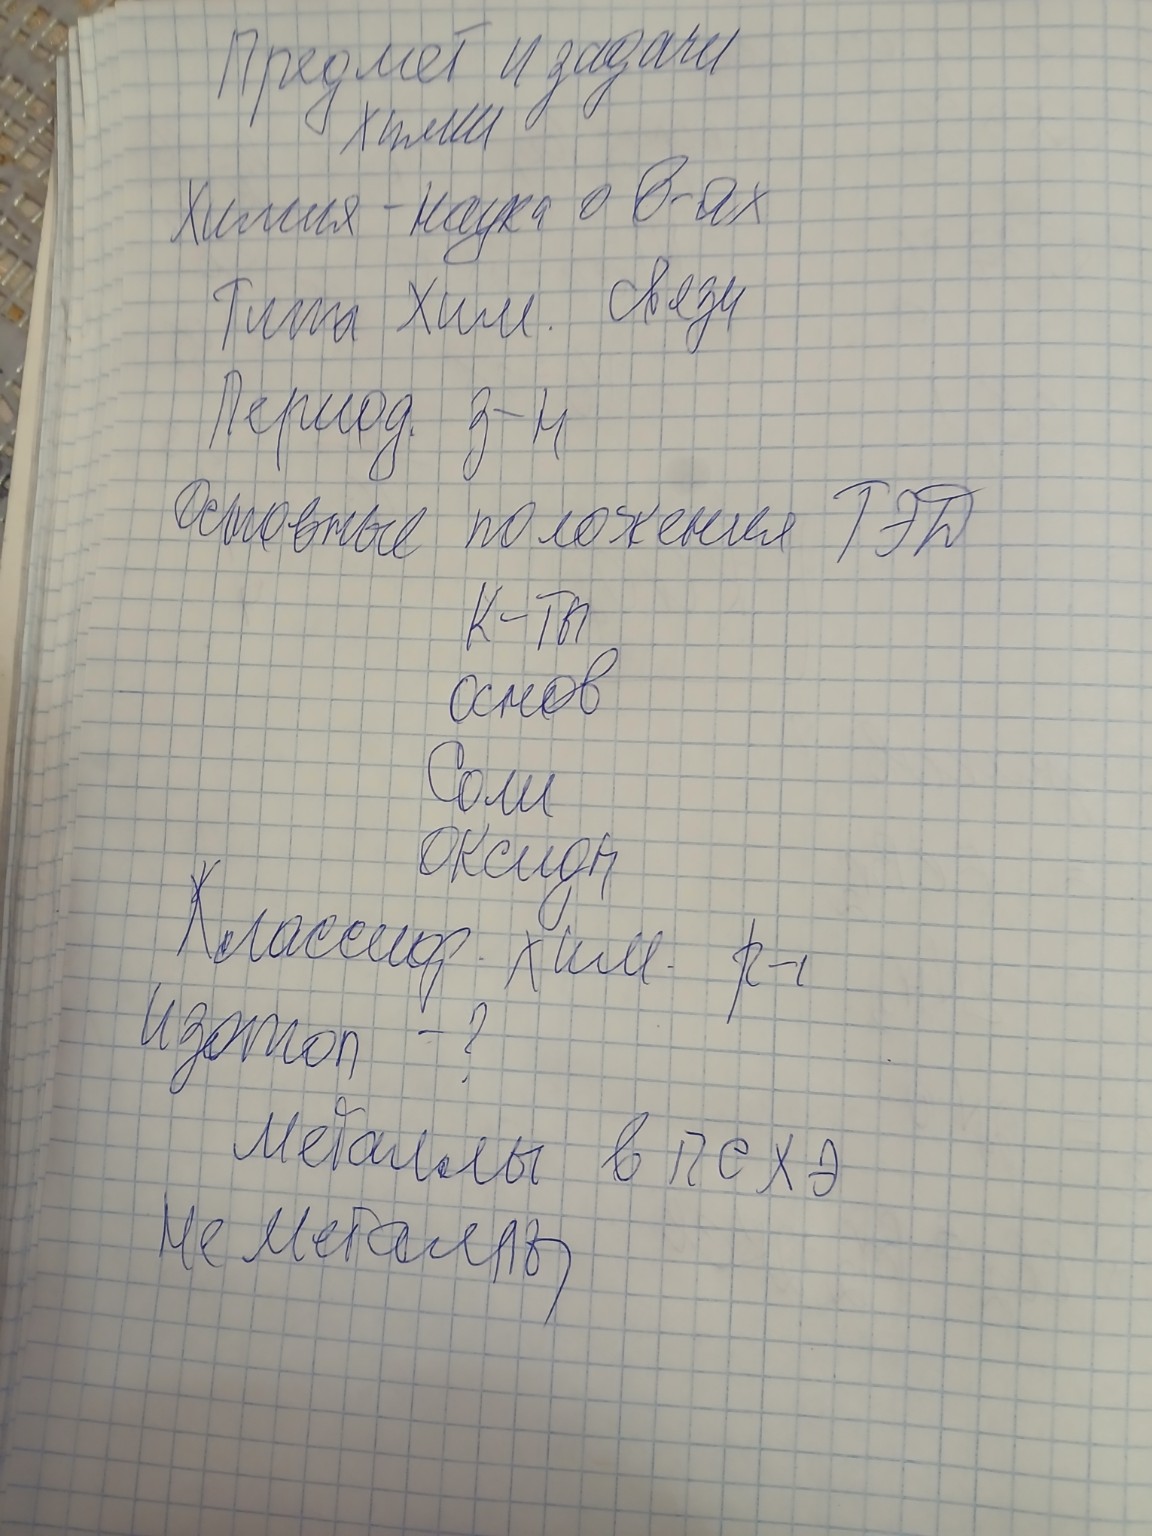 Предмет и задачи
химии
Химия - наука о в-ах
Типы хим. связи
Период. з-н
Основные положения ТЭД
к-ты
основ
Соли
оксиды
Классиф. хим. р-й
Изотоп - ?
Металлы в ПСХЭ
Неметаллы